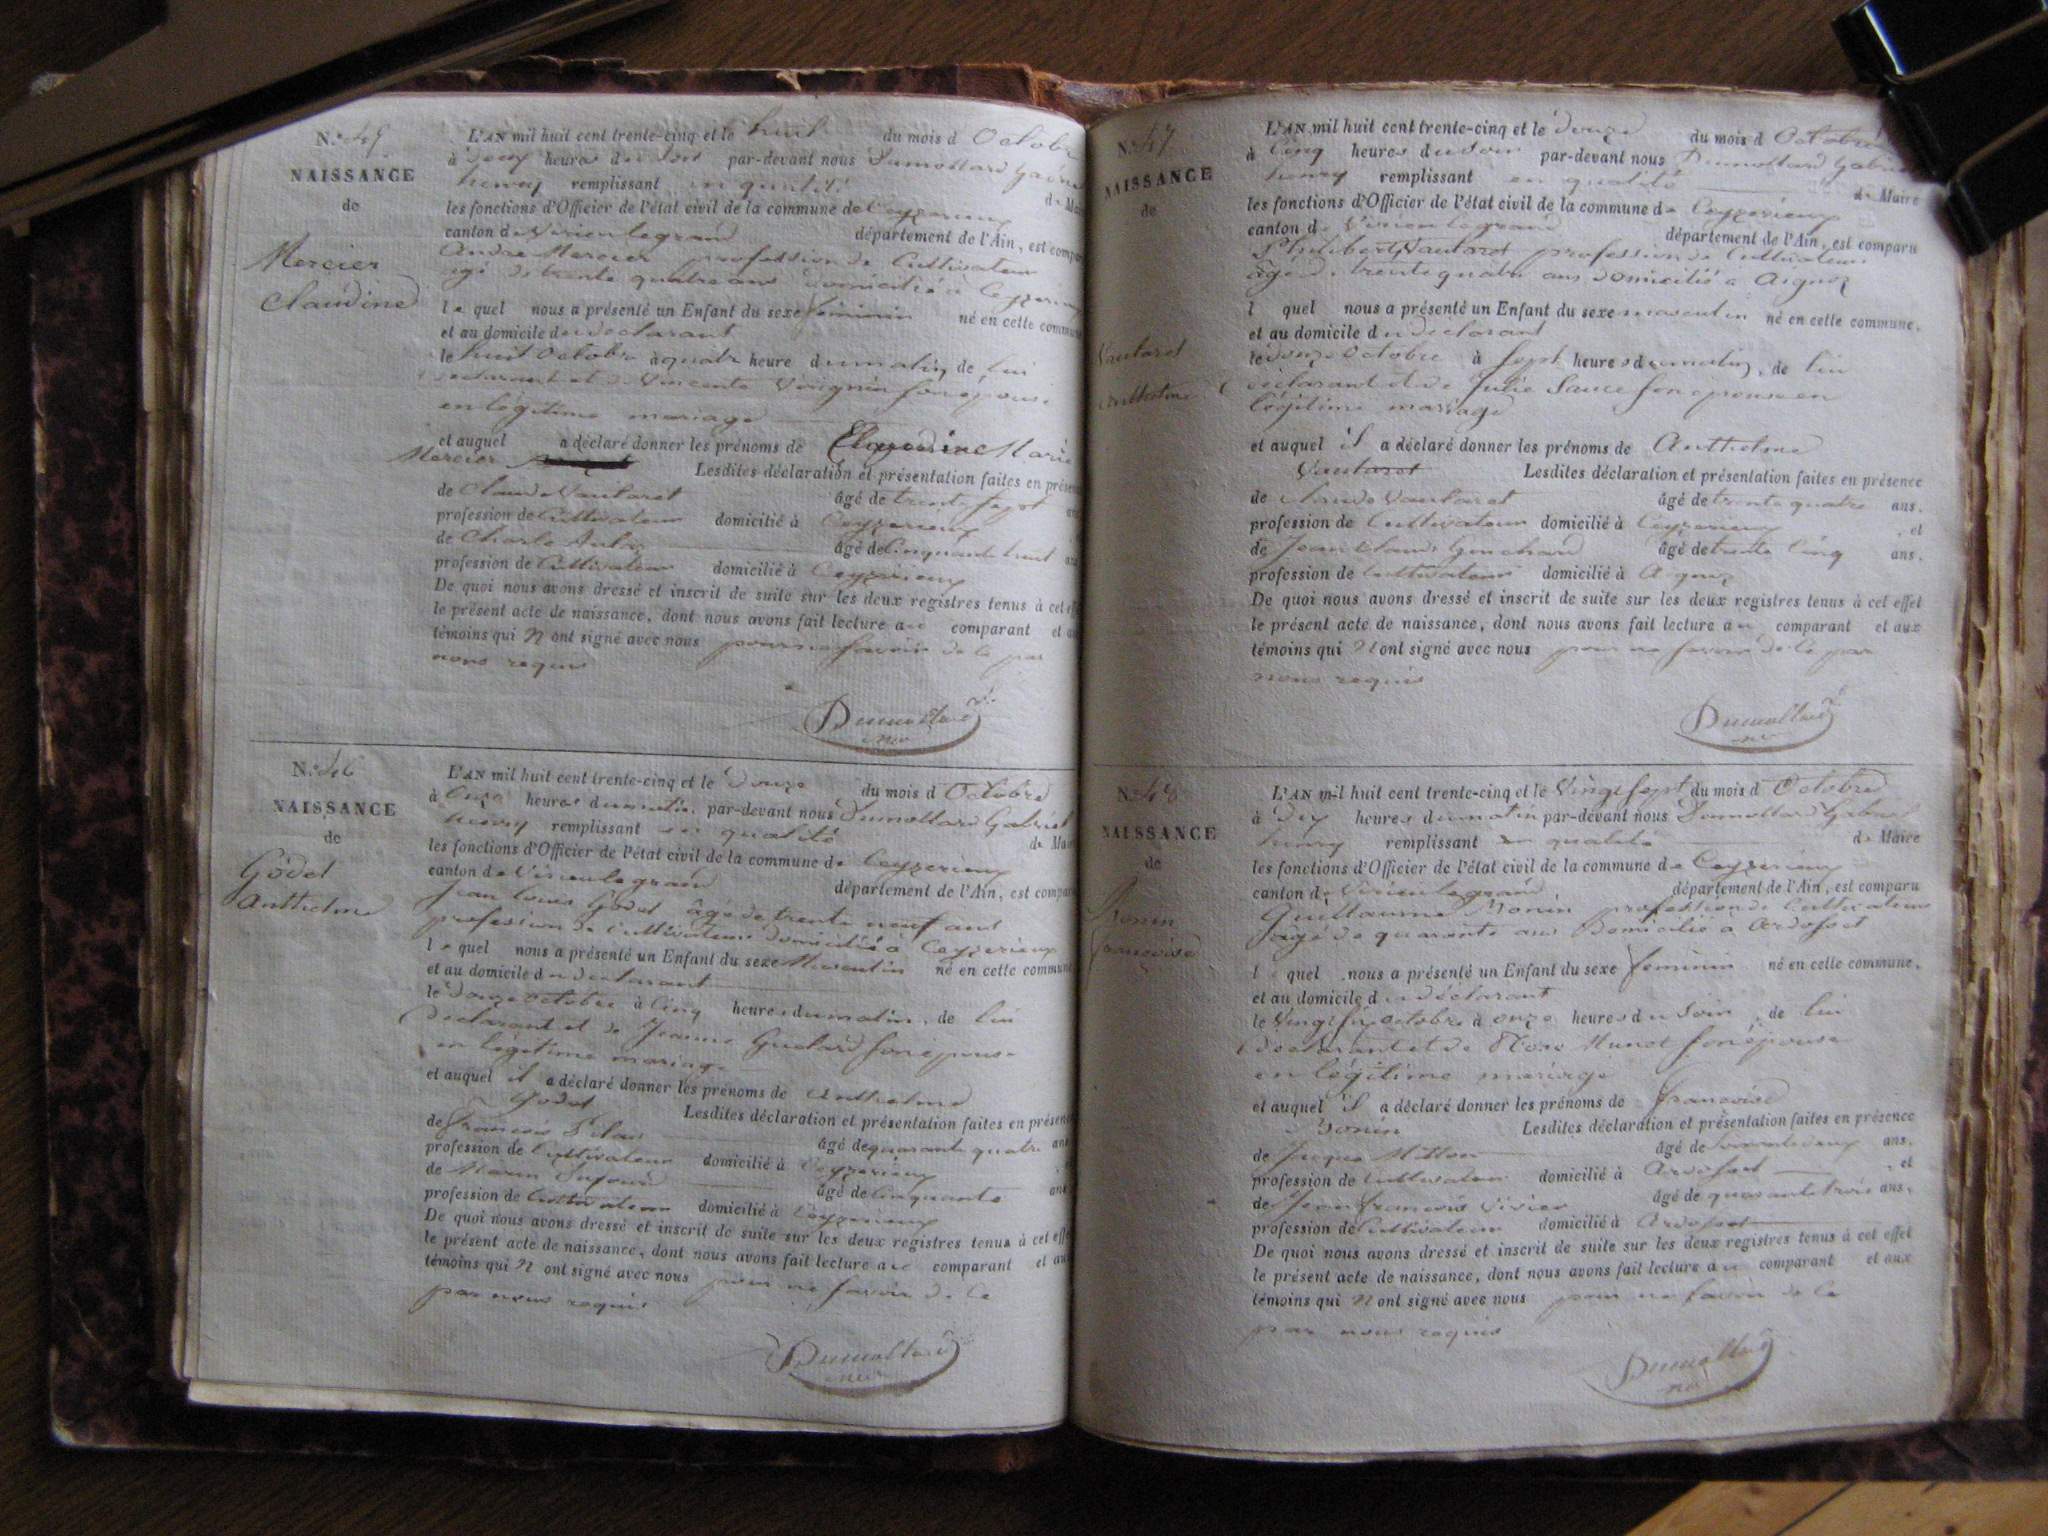 N.º 45
NAISSANCE
de
Mercier
Claudine
L'AN mil huit cent trente-cinq et le huit du mois d Octobre
à deux heures du soir par-devant nous Dumollard Gabriel
henry remplissant en qualité de Maire
les fonctions d'Officier de l'état civil de la commune de Ceyzerieux
canton de Virieu le grand département de l'Ain, est comparu
André Mercier profession de Cultivateur
agé de trente quatre ans domicilié à Ceyzerieux
le quel nous a présenté un Enfant du sexe féminin né en cette commune
et au domicile du declarant
le huit Octobre à quatre heure du matin, de lui
declarant et de Vincente son épouse
en légitime mariage
et auquel a déclaré donner les prénoms de Claudine Marie
Mercier Lesdites déclaration et présentation faites en présence
de Claude Vautaret âgé de trente sept ans
profession de Cultivateur domicilié à Ceyzerieux
de Charle âgé de Cinquante huit ans
profession de Cultivateur domicilié à Ceyzerieux
De quoi nous avons dressé et inscrit de suite sur les deux registres tenus à cet effet
le présent acte de naissance, dont nous avons fait lecture au comparant et aux
témoins qui n ont signé avec nous pour ne savoir de ce par
nous requis
Dumollard
N.º 46
NAISSANCE
de
Godet
Anthelme
L'AN mil huit cent trente-cinq et le douze du mois d Octobre
à Onze heures du matin par-devant nous Dumollard Gabriel
henry remplissant en qualité de Maire
les fonctions d'Officier de l'état civil de la commune de Ceyzerieux
canton de Virieu le grand département de l'Ain, est comparu
Jean Louis Godet âgé de trente neuf ans
profession de Cultivateur domicilié à Ceyzerieux
le quel nous a présenté un Enfant du sexe Masculin né en cette commune
et au domicile du declarant
le douze octobre à Cinq heures du matin, de lui
declarant et de Jeanne son épouse
en légitime mariage
et auquel il a déclaré donner les prénoms de Anthelme
Godet Lesdites déclaration et présentation faites en présence
de françois âgé de quarante quatre ans
profession de Cultivateur domicilié à Ceyzerieux
de âgé de Cinquante ans
profession de Cultivateur domicilié à Ceyzerieux
De quoi nous avons dressé et inscrit de suite sur les deux registres tenus à cet effet
le présent acte de naissance, dont nous avons fait lecture au comparant et aux
témoins qui n ont signé avec nous pour ne savoir de ce
par nous requis
Dumollard
N.º 47
NAISSANCE
de
Vautaret
Anthelme
L'AN mil huit cent trente-cinq et le douze du mois d Octobre
à Cinq heures du soir par-devant nous Dumollard Gabriel
henry remplissant en qualité de Maire
les fonctions d'Officier de l'état civil de la commune de Ceyzerieux
canton de Virieu le grand département de l'Ain, est comparu
Philibert Vautaret profession de Cultivateur
âgé de trente quatre ans domicilié à Aignoz
l quel nous a présenté un Enfant du sexe masculin né en cette commune.
et au domicile du declarant
le douze Octobre à sept heures du matin, de lui
déclarant et de Julie Sauce son épouse en
légitime mariage
et auquel il a déclaré donner les prénoms de Anthelme
Vautaret Lesdites déclaration et présentation faites en présence
de Claude Vautaret âgé de trente quatre ans.
profession de Cultivateur domicilié à Ceyzerieux , et
de Jean Claude Guichard âgé de trente Cinq ans.
profession de Cultivateur domicilié à Aignoz
De quoi nous avons dressé et inscrit de suite sur les deux registres tenus à cet effet
le présent acte de naissance, dont nous avons fait lecture au comparant et aux
témoins qui n ont signé avec nous pour ne savoir de ce par
nous requis
Dumollard
N.º 48
NAISSANCE
de
Bonin
françoise
L'AN mil huit cent trente-cinq et le Vingt sept du mois d Octobre
à Dix heures du matin par-devant nous Dumollard Gabriel
henry remplissant en qualité de Maire
les fonctions d'Officier de l'état civil de la commune de Ceyzerieux
canton de Virieu le grand département de l'Ain, est comparu
Guillaume Bonin profession de Cultivateur
âgé de quarante ans Domicilié à Ardosset
le quel nous a présenté un Enfant du sexe feminin né en cette commune.
et au domicile du déclarant
le Vingt six octobre à onze heures du soir, de lui
declarant et de son épouse
en légitime mariage
et auquel il a déclaré donner les prénoms de françoise
Bonin Lesdites déclaration et présentation faites en présence
de Jacque âgé de ans.
profession de Cultivateur domicilié à Ardosset , et
de Jean françois Vivier âgé de quarante trois ans.
profession de Cultivateur domicilié à Ardosset
De quoi nous avons dressé et inscrit de suite sur les deux registres tenus à cet effet
le présent acte de naissance, dont nous avons fait lecture au comparant et aux
témoins qui n ont signé avec nous pour ne savoir de ce
par nous requis
Dumollard